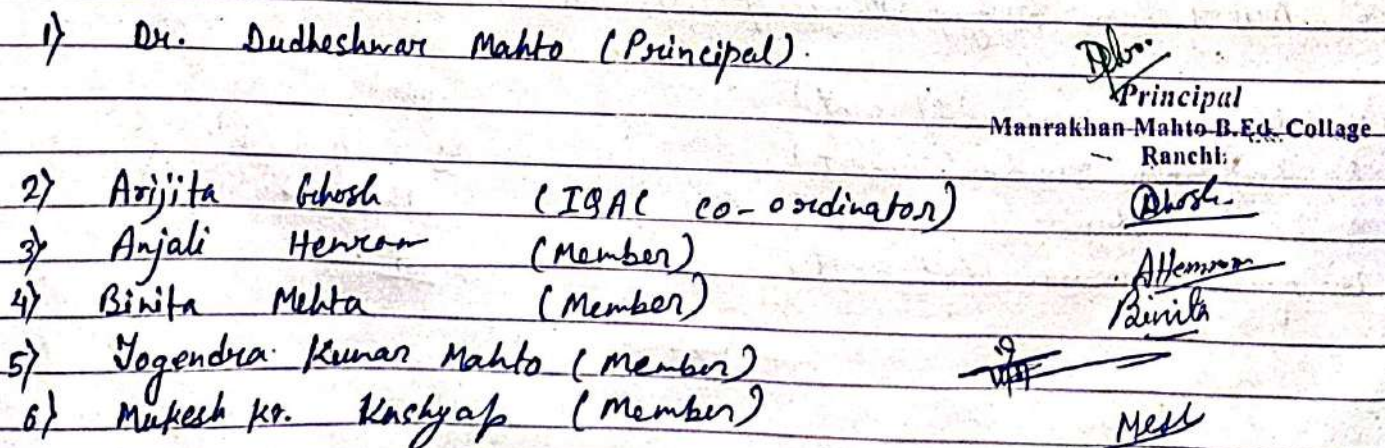 1) Dr. Dudheshwar Mahto (Principal).
Principal
Manrakhan Mahto B.Ed. Collage
Ranchi.
2) Arijita Ghosh (IQAC co-ordinator) Ghosh
3) Anjali Hemrom (Member) AHemrom
4) Binita Mehta (Member) Binita
5) Jogendra Kumar Mahto (Member)
6) Mukesh Kr. Kashyap (Member)